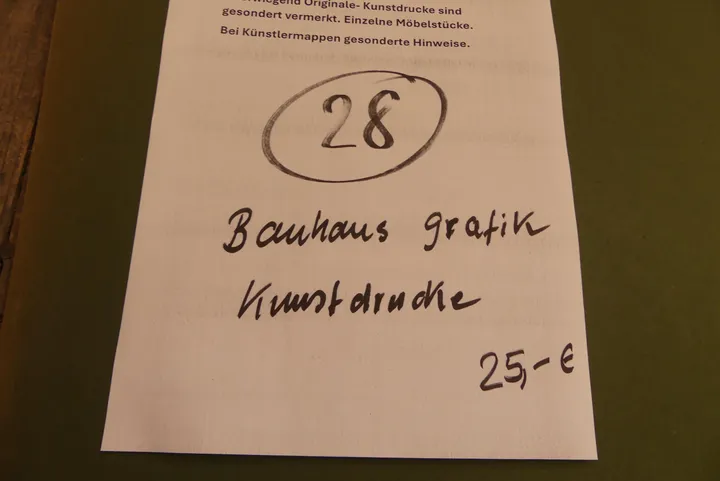 Originale- Kunstdrucke sind
gesondert vermerkt. Einzelne Möbelstücke.
Bei Künstlermappen gesonderte Hinweise.
28
Bauhaus grafik
Kunstdrucke
25,- €